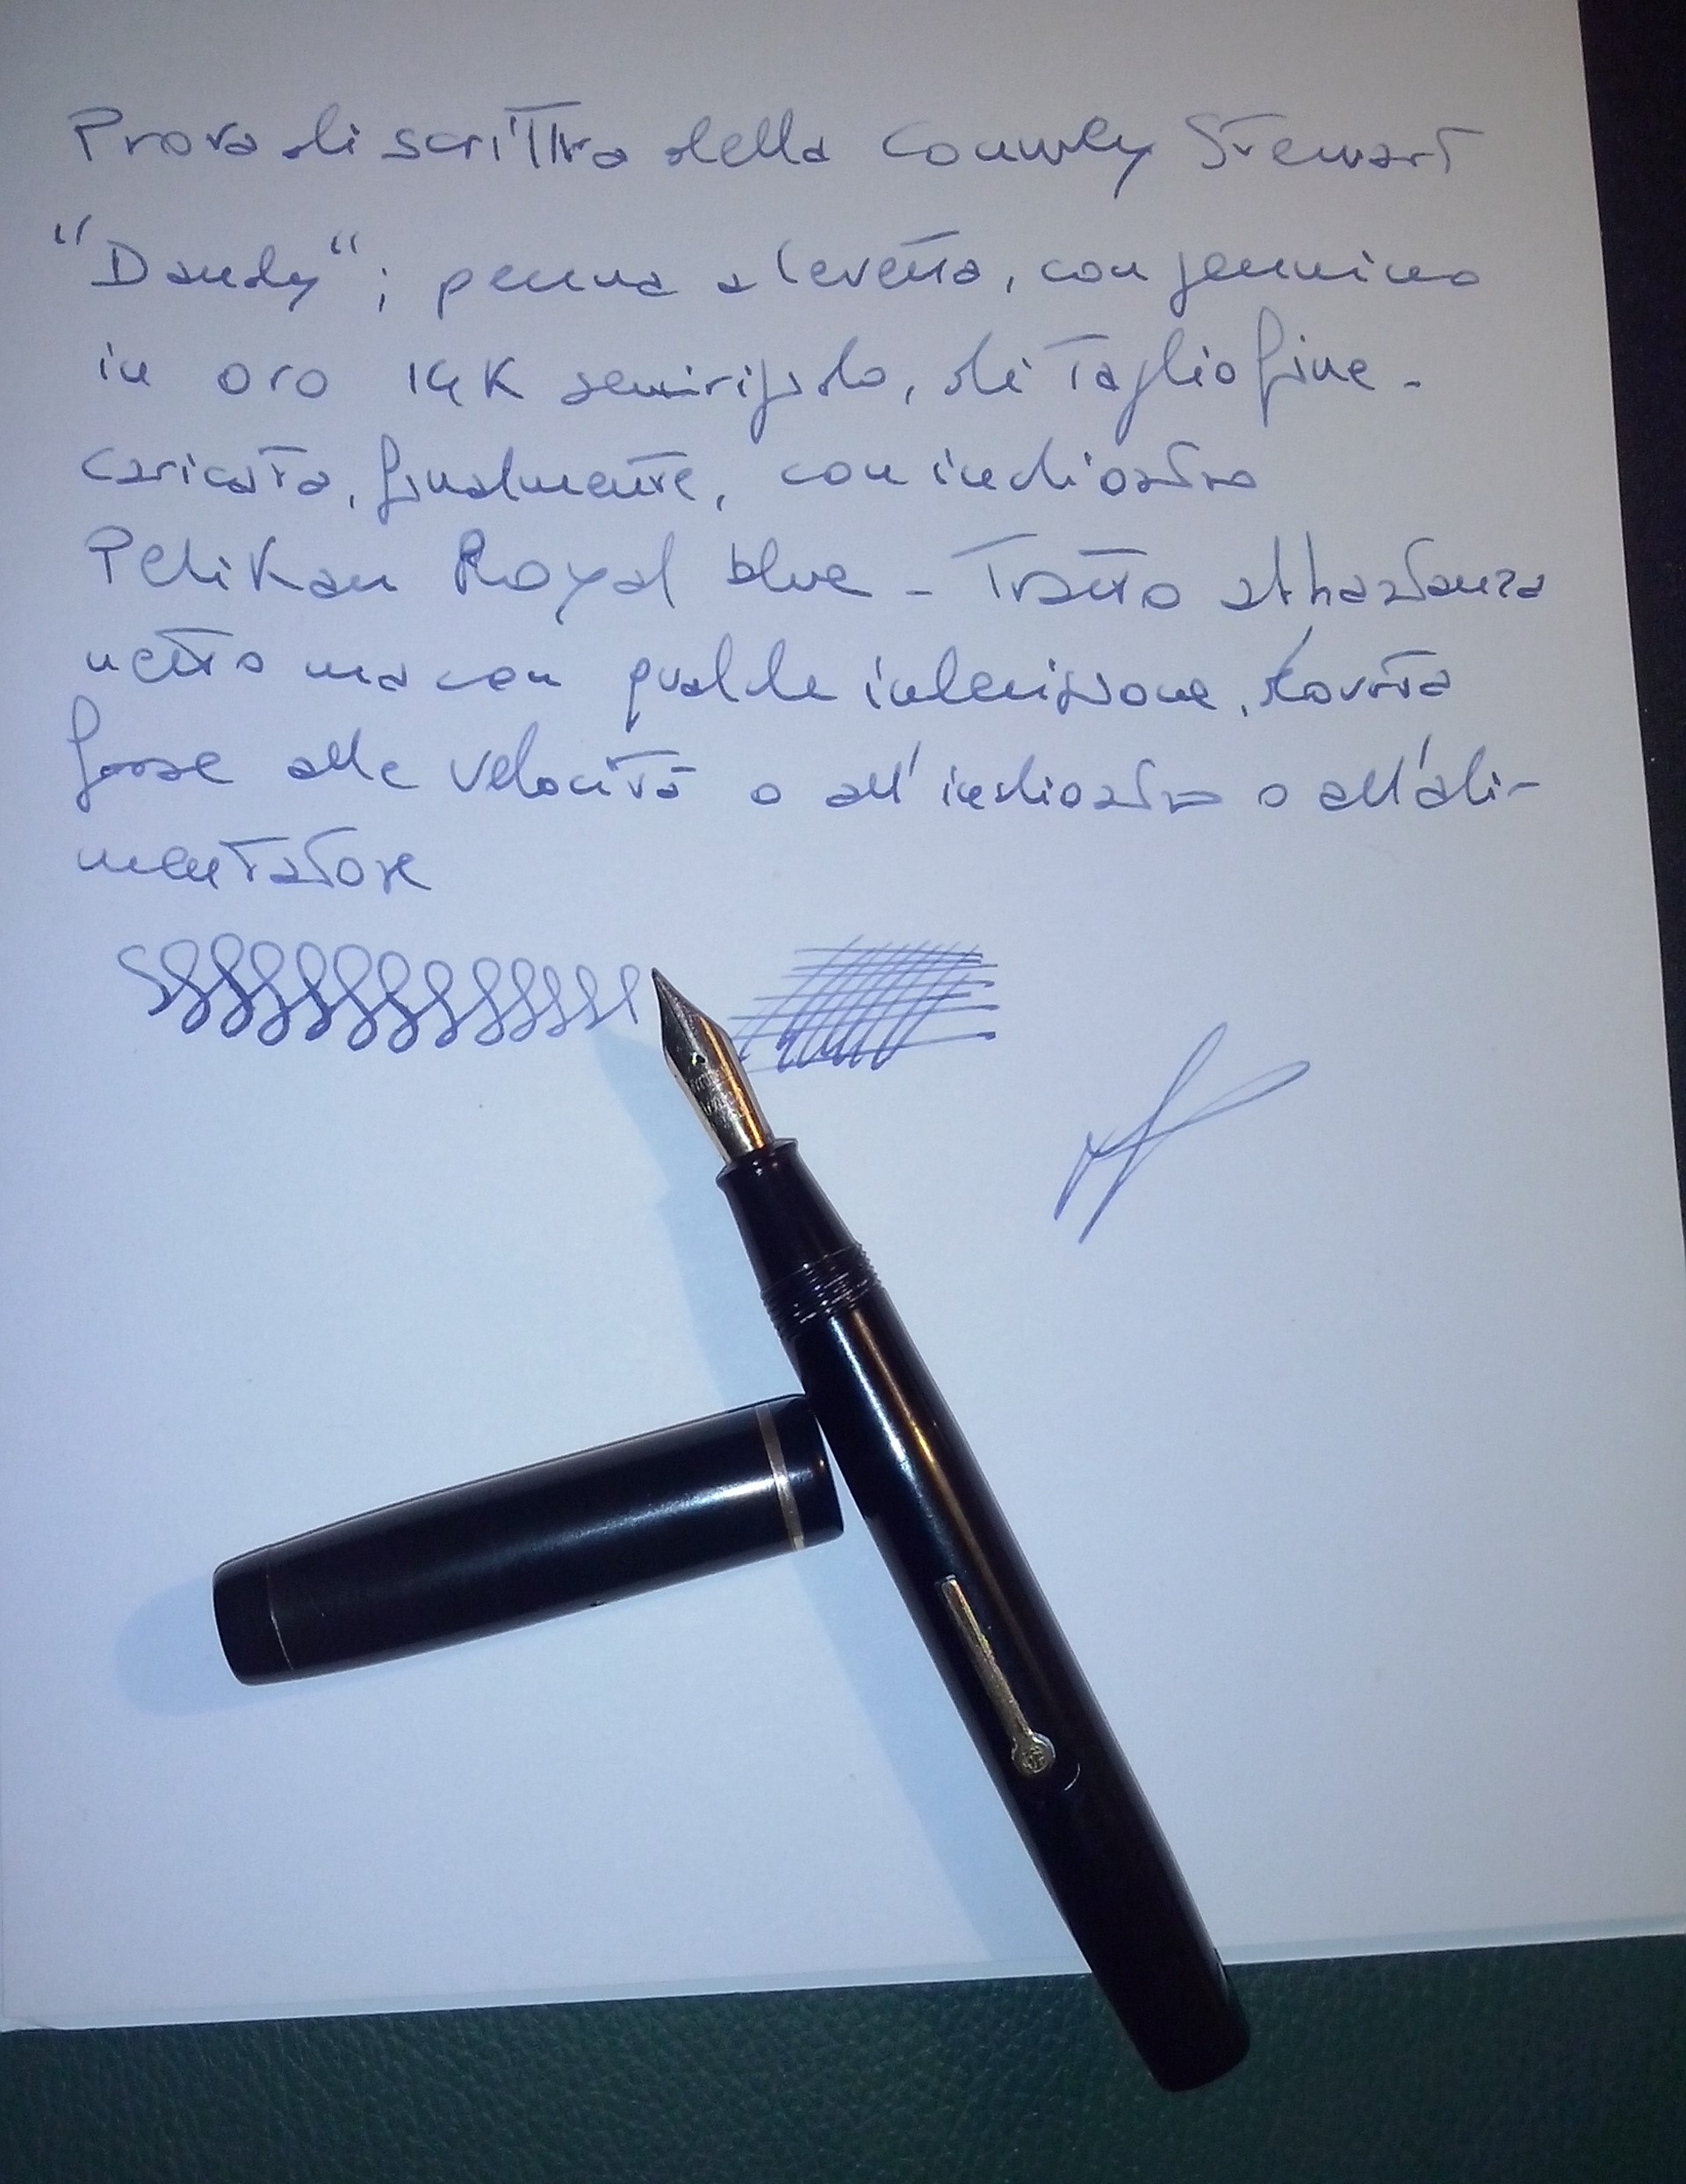 Prova di scrittura della Conwey Stewart
"Dandy"; penna a levetta, con pennino
in oro 14K semirigido, di taglio fine -
caricata, finalmente, con inchiostro
Pelikan Royal blue - Tratto abbastanza
netto ma con qualche indecisione, dovuta
forse alla velocità o all'inchiostro o all'ali-
mentatore